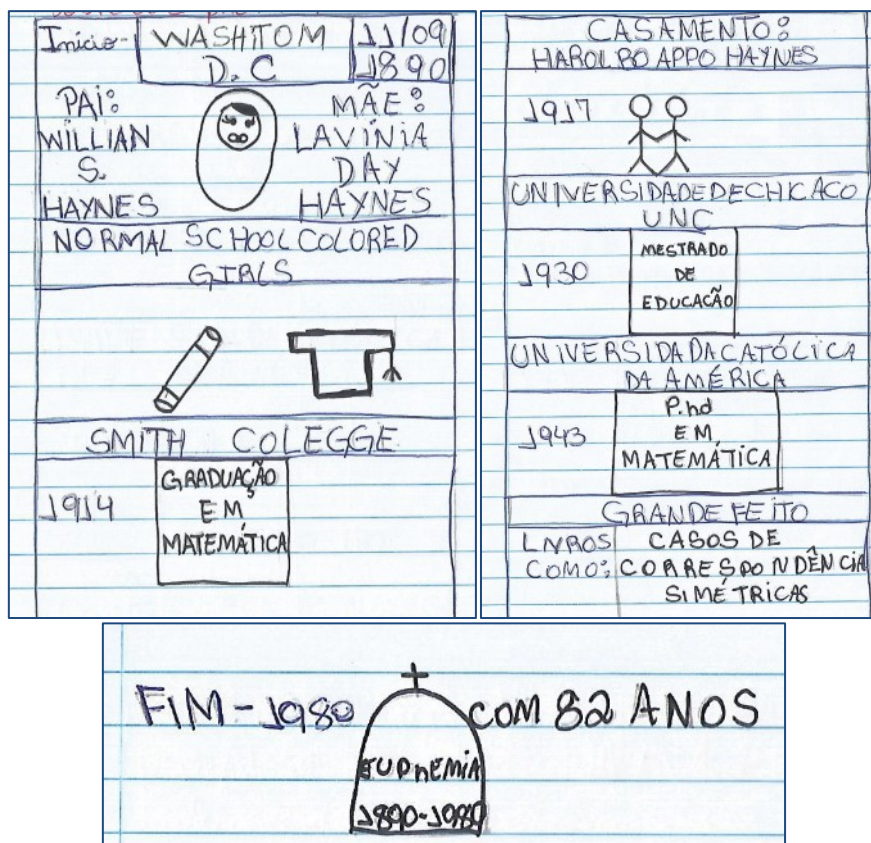 Início- WASHITOM 11/09
D.C 1890
PAI: MÃE:
WILLIAN LAVÍNIA
S. DAY
HAYNES HAYNES
NORMAL SCHOOL COLORED
GIRLS
SMITH COLEGGE
1914 GRADUAÇÃO
EM
MATEMÁTICA
CASAMENTO:
HAROLBO APPO HAYNES
1917
UNIVERSIDADE DE CHICACO
UNC
1930 MESTRADO
DE
EDUCACÃO
UNIVERSIDADA CATÓLICA
DA AMÉRICA
1943 P.hd
EM
MATEMÁTICA
GRANDE FEITO
LIVROS CASOS DE
COMO: CORRESPONDÊNCIA
SIMÉTRICAS
FIM-1980 COM 82 ANOS
EUPHEMIA
1890-1980